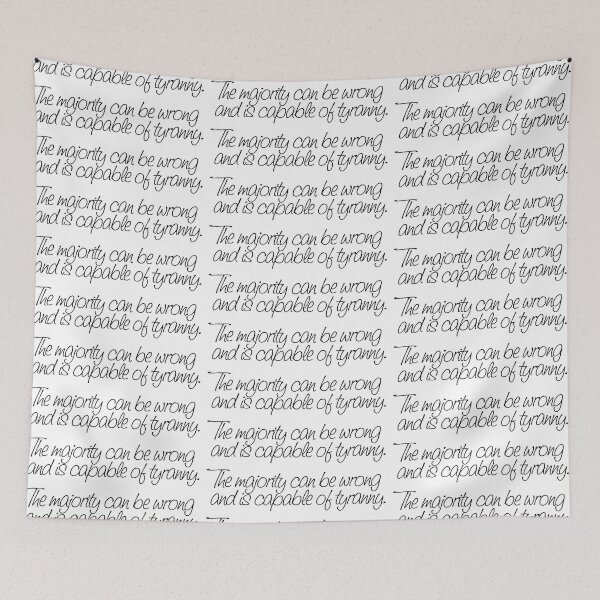 and is capable of tyranny.
The majority can be wrong
and is capable of tyranny.
The majority can be wrong
and is capable of tyranny.
The majority can be wrong
and is capable of tyranny.
The majority can be wrong
and is capable of tyranny.
The majority can be wrong
and is capable of tyranny.
The majority can be wrong
and is capable of tyranny.
The majority can be wrong
and is capable of tyranny.
The majority can be wrong
and is capable of tyranny.
The majority can be wrong
and is capable of tyranny.
The majority can be wrong
and is capable of tyranny.
The majority can be wrong
and is capable of tyranny.
The majority can be wrong
and is capable of tyranny.
The majority can be wrong
and is capable of tyranny.
The majority can be wrong
and is capable of tyranny.
The majority can be wrong
and is capable of tyranny.
The majority can be wrong
and is capable of tyranny.
The majority can be wrong
and is capable of tyranny.
The majority can be wrong
and is capable of tyranny.
The majority can be wrong
and is capable of tyranny.
The majority can be wrong
and is capable of tyranny.
The majority can be wrong
and is capable of tyranny.
The majority can be wrong
and is capable of tyranny.
The majority can be wrong
and is capable of tyranny.
The majority can be wrong
and is capable of tyranny.
The majority can be wrong
and is capable of tyranny.
The majority can be wrong
and is capable of tyranny.
The majority can be wrong
and is capable of tyranny.
The majority can be wrong
and is capable of tyranny.